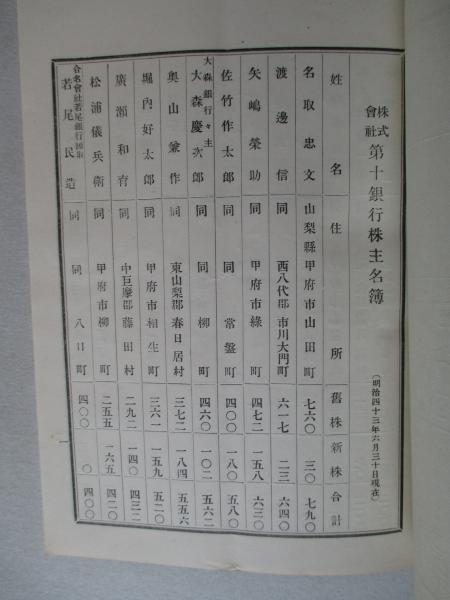 株式會社 第十銀行株主名簿 (明治四十三年六月三十日現在)
姓名 住所 舊株 新株 合計
名取忠文 山梨縣甲府市山田町 七六〇 三〇 七九〇
渡邊信 同 西八代郡市川大門町 六一七 二三 六四〇
矢嶋榮助 同 甲府市綠町 四七二 一五八 六三〇
佐竹作太郎 同 同 常盤町 四〇〇 一八〇 五八〇
大森銀行々主 大森慶次郎 同 同 柳町 四六〇 一〇二 五六二
奥山兼作 同 東山梨郡春日居村 三七二 一八四 五五六
堀內好太郎 同 甲府市相生町 三六一 一五九 五二〇
廣瀬和育 同 中巨摩郡藤田村 二九二 一四〇 四三二
松浦儀兵衞 同 甲府市柳町 二五五 一六五 四二〇
合名會社若尾銀行頭取 若尾民造 同 同 八日町 四〇〇 〇 四〇〇
一